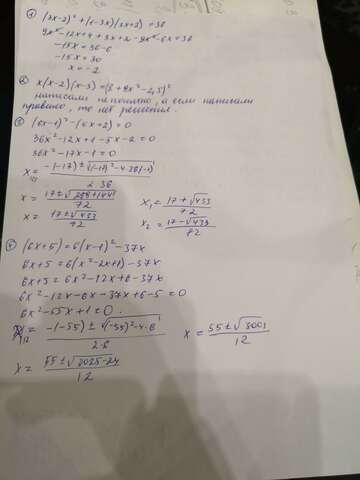 1) (3x-2)² + (1-3x)(3x+2) = 36
9x² - 12x + 4 + 3x + 2 - 9x² - 6x = 36
-15x = 36-6
-15x = 30
x = -2
2) x(x-2)(x-3) = (8+9x²-2,5)²
написали не понятно, а если написали
правильно, то нет решения.
3) (6x-1)² - (5x+2) = 0
36x² - 12x + 1 - 5x - 2 = 0
36x² - 17x - 1 = 0
x = -(-17) ± √(-17)² - 4·36(-1)
1,2
2·36
x = 17 ± √289+144
72
x₁ = 17 + √433
72
x = 17 ± √433
72
x₂ = 17 - √433
72
4) (6x+5) = 6(x-1)² - 37x
6x+5 = 6(x²-2x+1) - 37x
6x+5 = 6x² - 12x + 6 - 37x
6x² - 12x - 6x - 37x + 6 - 5 = 0
6x² - 55x + 1 = 0.
x₁,₂ = -(-55) ± √(-55)² - 4·6
2·6
x = 55 ± √3001
12
x = 55 ± √3025-24
12